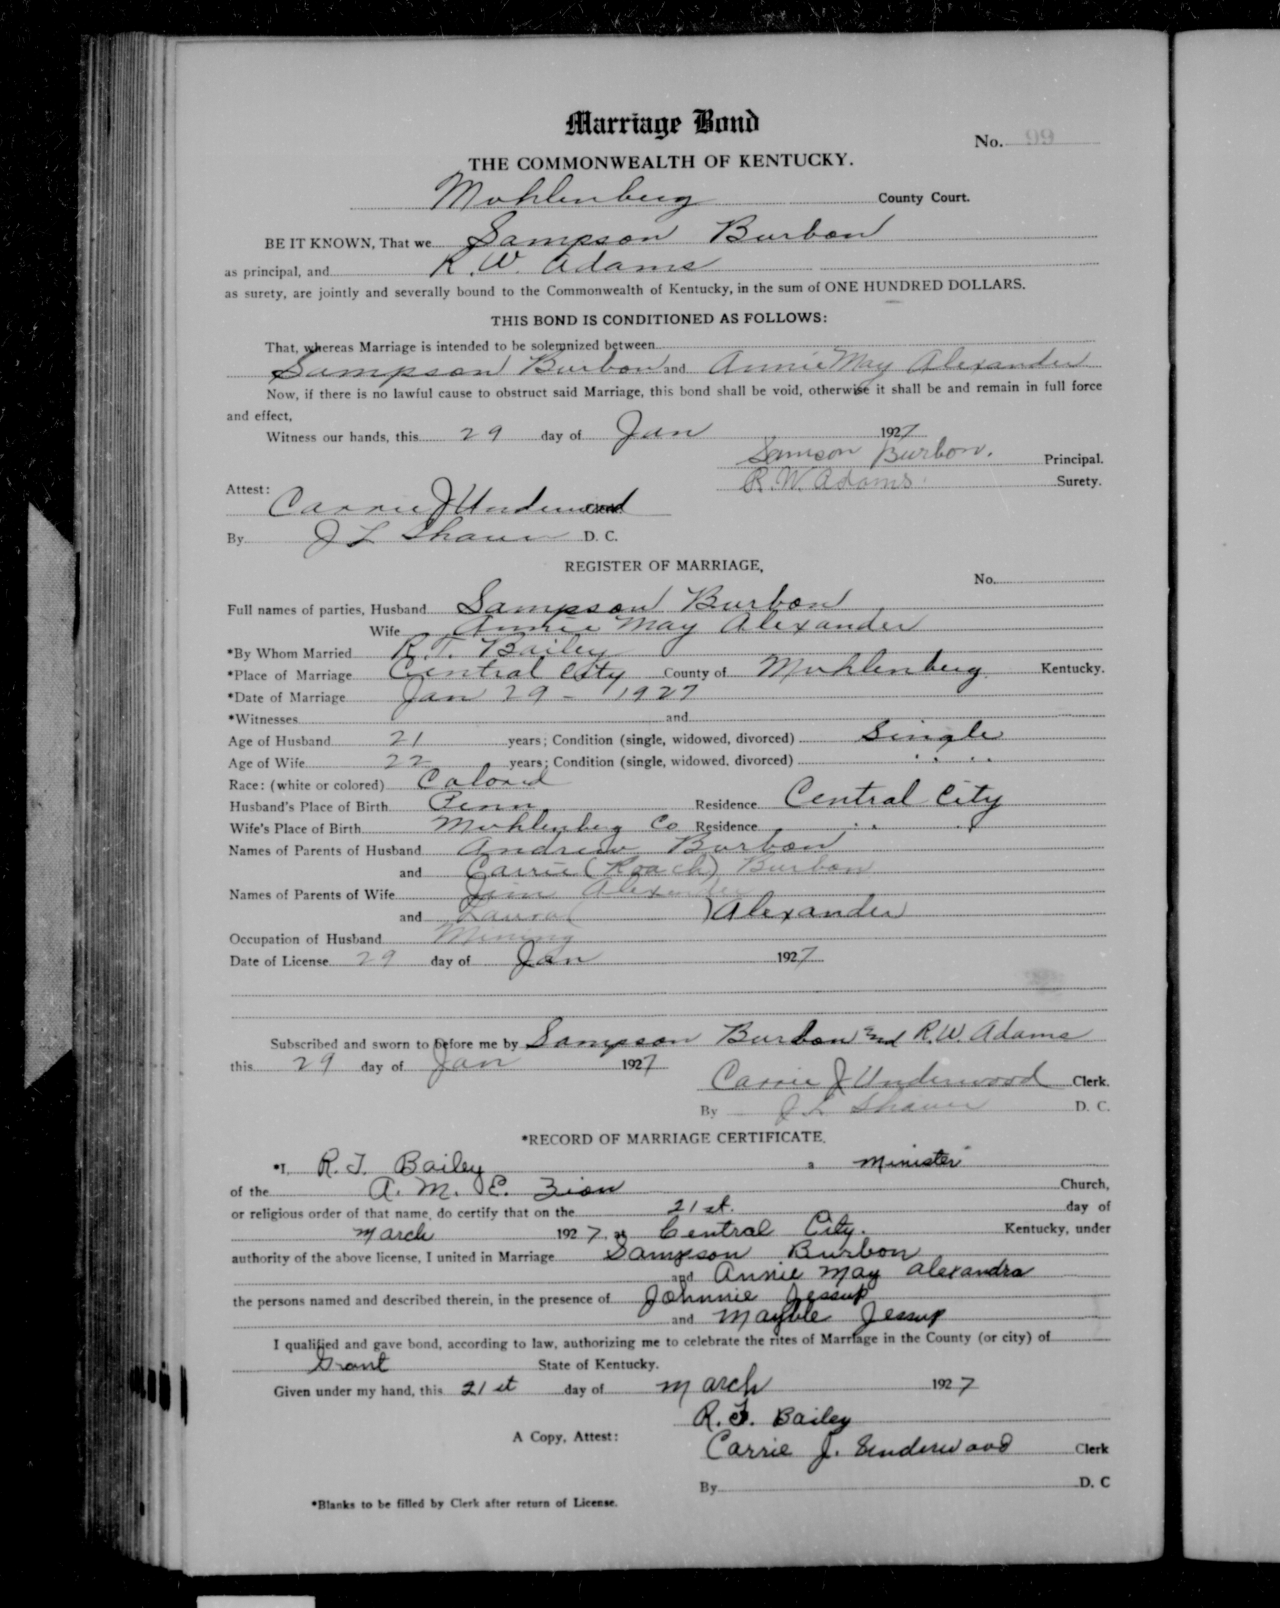 Marriage Bond
No. 99
THE COMMONWEALTH OF KENTUCKY.
Muhlenberg County Court.
BE IT KNOWN, That we Sampson Burbon
as principal, and R. W. Adams
as surety, are jointly and severally bound to the Commonwealth of Kentucky, in the sum of ONE HUNDRED DOLLARS.
THIS BOND IS CONDITIONED AS FOLLOWS:
That, whereas Marriage is intended to be solemnized between
Sampson Burbon and Annie May Alexander
Now, if there is no lawful cause to obstruct said Marriage, this bond shall be void, otherwise it shall be and remain in full force
and effect,
Witness our hands, this 29 day of Jan 1927
Samson Burbon. Principal.
R. W. Adams. Surety.
Attest:
Carrie J Underwood Clerk
By J L Shaver D. C.
REGISTER OF MARRIAGE,
No.
Full names of parties, Husband Sampson Burbon
Wife Annie May Alexander
*By Whom Married R. T. Bailey
*Place of Marriage Central City County of Muhlenberg Kentucky.
*Date of Marriage Jan 29 - 1927
*Witnesses and
Age of Husband 21 years; Condition (single, widowed, divorced) Single
Age of Wife 22 years; Condition (single, widowed, divorced) " "
Race: (white or colored) Colored
Husband's Place of Birth Penn Residence Central City
Wife's Place of Birth Muhlenberg Co Residence " "
Names of Parents of Husband Andrew Burbon
and Carrie (Roach) Burbon
Names of Parents of Wife Jim Alexander
and Laura ( ) Alexander
Occupation of Husband Mining
Date of License 29 day of Jan 1927
Subscribed and sworn to before me by Sampson Burbon and R. W. Adams
this 29 day of Jan 1927
Carrie J Underwood Clerk.
By J L Shaver D. C.
*RECORD OF MARRIAGE CERTIFICATE.
*I, R. T. Bailey a Minister
of the A. M. E. Zion Church,
or religious order of that name, do certify that on the 21st. day of
March 1927, at Central City. Kentucky, under
authority of the above license, I united in Marriage Sampson Burbon
and Annie May Alexandra
the persons named and described therein, in the presence of Johnnie Jessup
and Mayble Jessup
I qualified and gave bond, according to law, authorizing me to celebrate the rites of Marriage in the County (or city) of
Grant State of Kentucky.
Given under my hand, this 21st day of March 1927
R. T. Bailey
A Copy, Attest:
Carrie J. Underwood Clerk
By D. C
*Blanks to be filled by Clerk after return of License.